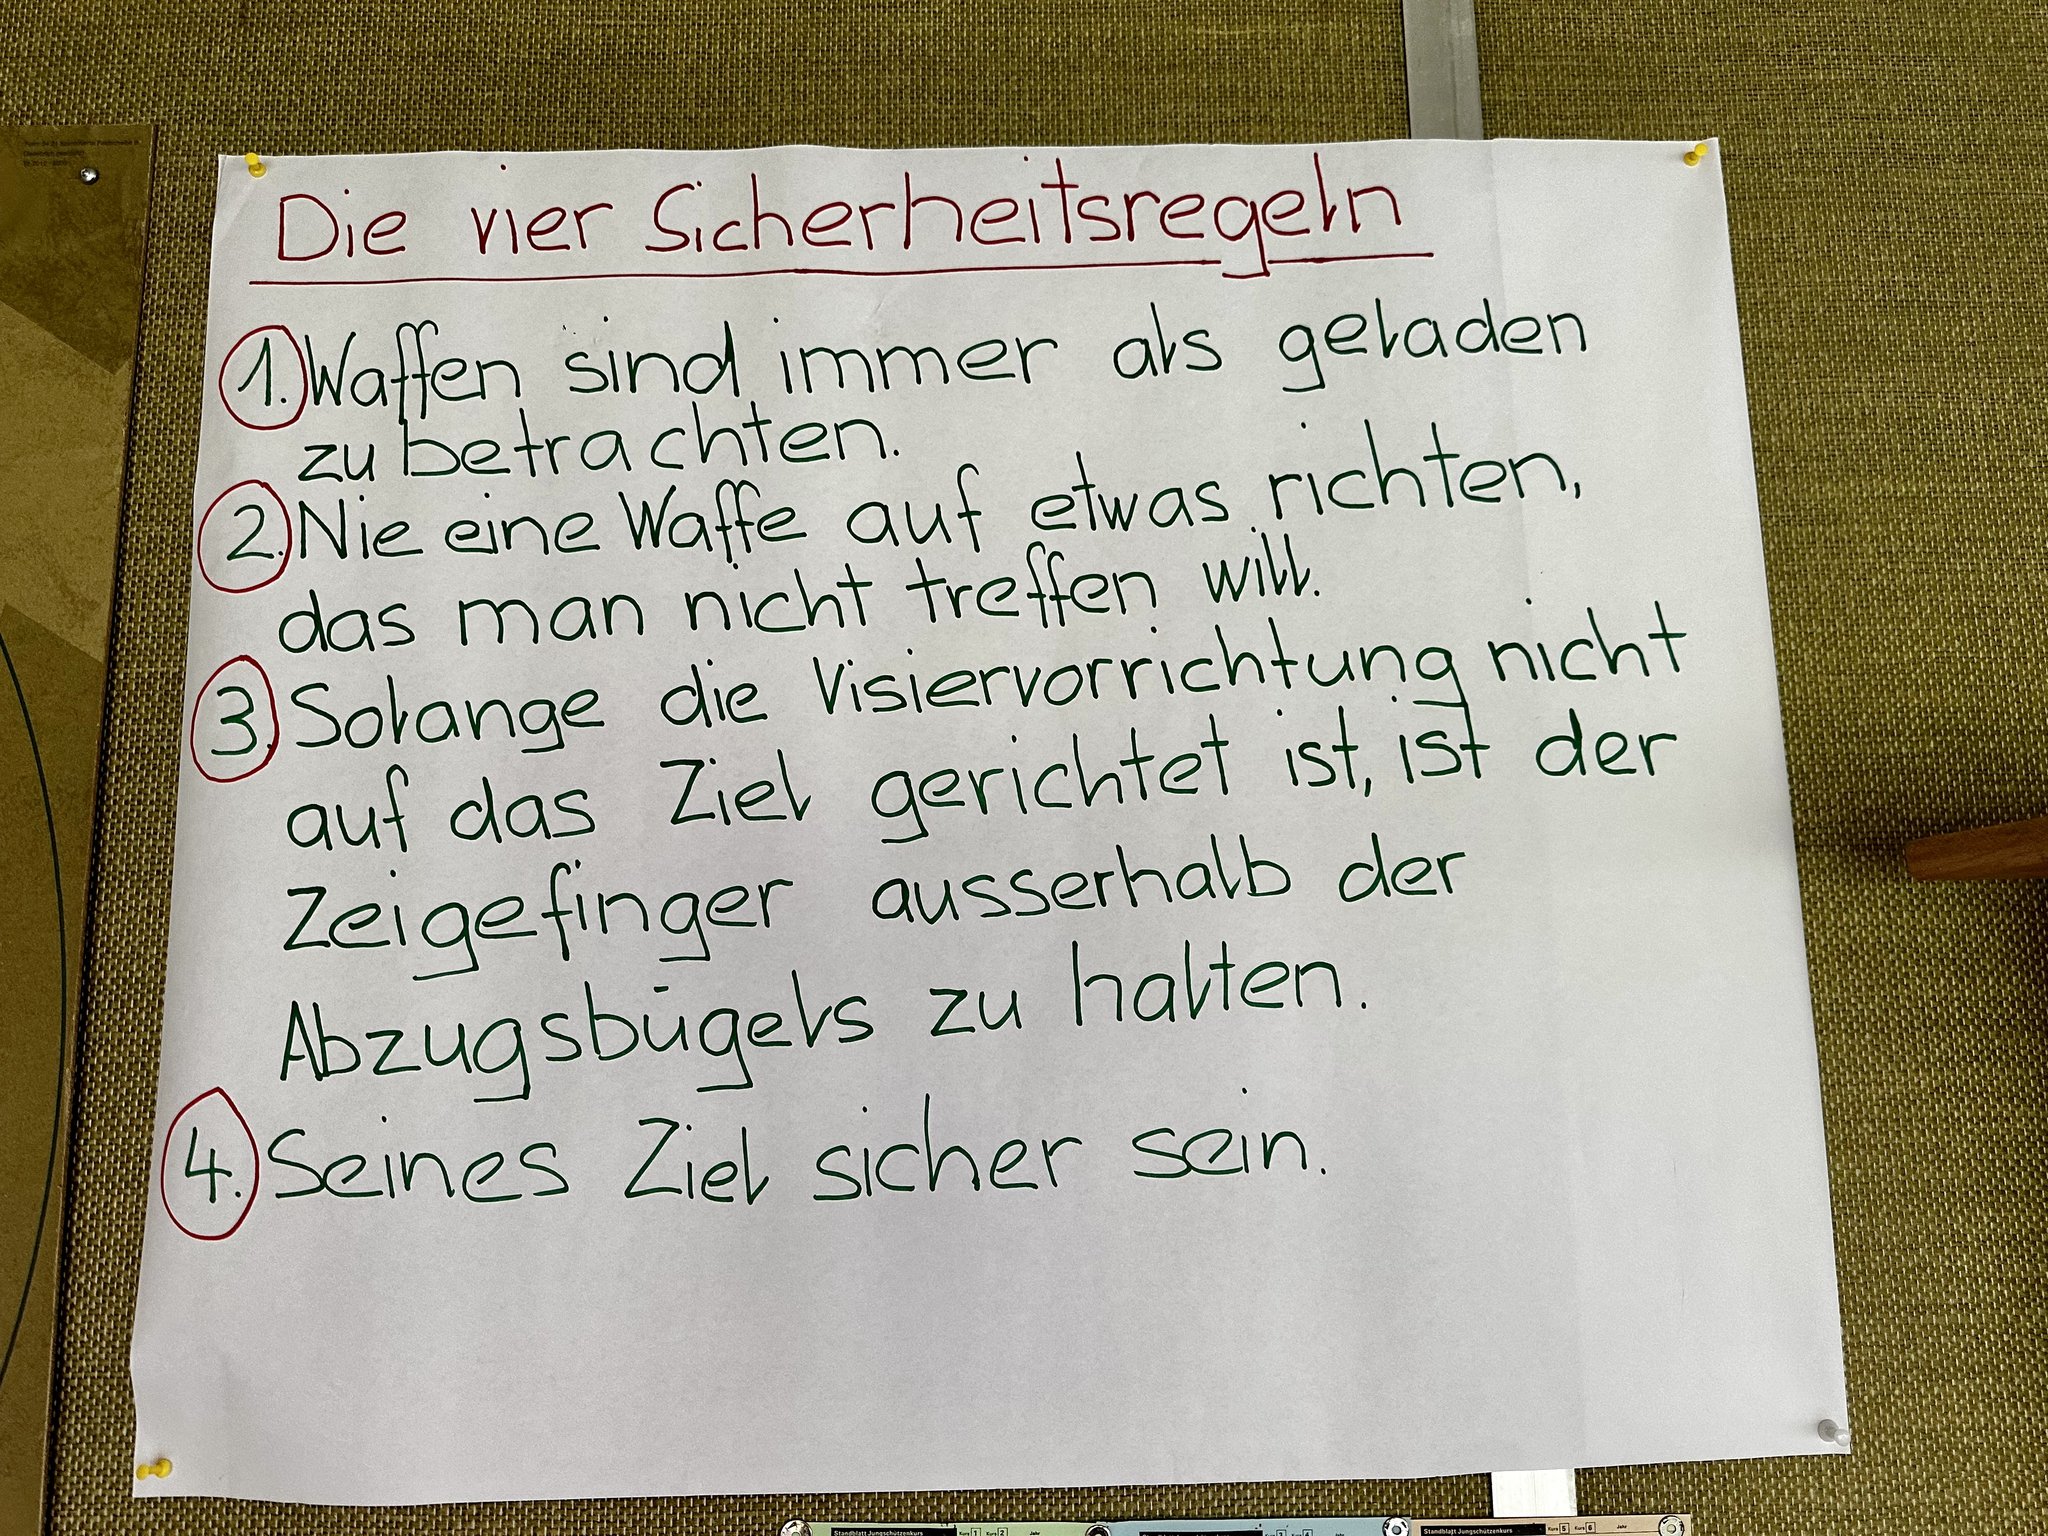 Die vier Sicherheitsregeln
1. Waffen sind immer als geladen
zu betrachten.
2. Nie eine Waffe auf etwas richten,
das man nicht treffen will.
3. Solange die Visiervorrichtung nicht
auf das Ziel gerichtet ist, ist der
Zeigefinger ausserhalb der
Abzugsbügels zu halten.
4. Seines Ziel sicher sein.
Standblatt Jungschützenkurs Kurs 1 Kurs 2 Jahr
Standblatt Jungschützenkurs Kurs 3 Kurs 4 Jahr
Standblatt Jungschützenkurs Kurs 5 Kurs 6 Jahr